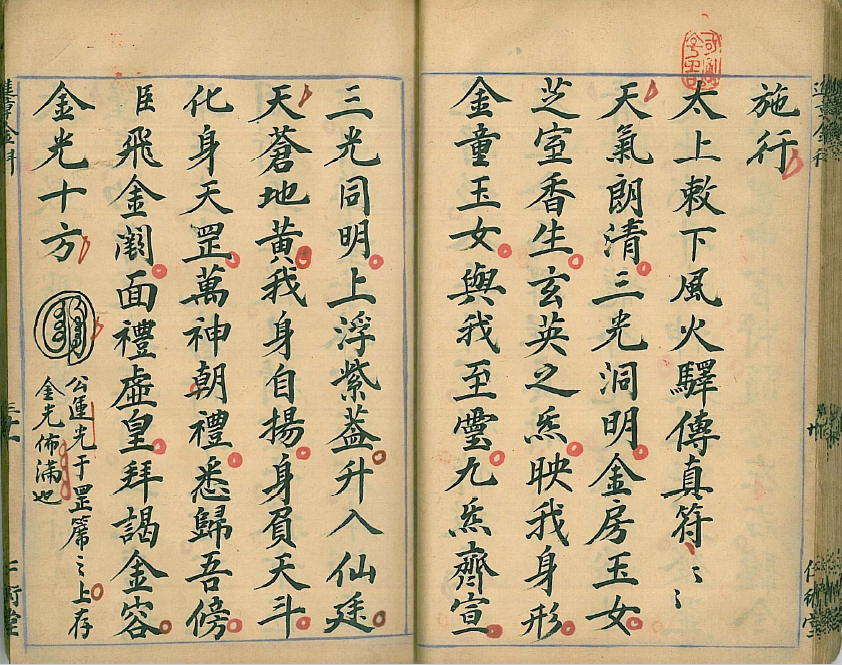 施行
太上敕下風火驛傳真符〻〻
天氣朗清三光洞明金房玉女
芝室香生玄英之炁映我身形
金童玉女與我至靈九炁齊宣
三光同明上浮紫蓋升入仙廷
天蒼地黃我身自揚身負天斗
化身天罡萬神朝禮悉歸吾傍
臣飛金闕面禮虛皇拜謁金容
金光十方
公運光于罡篆〻上存
金光佈滿也